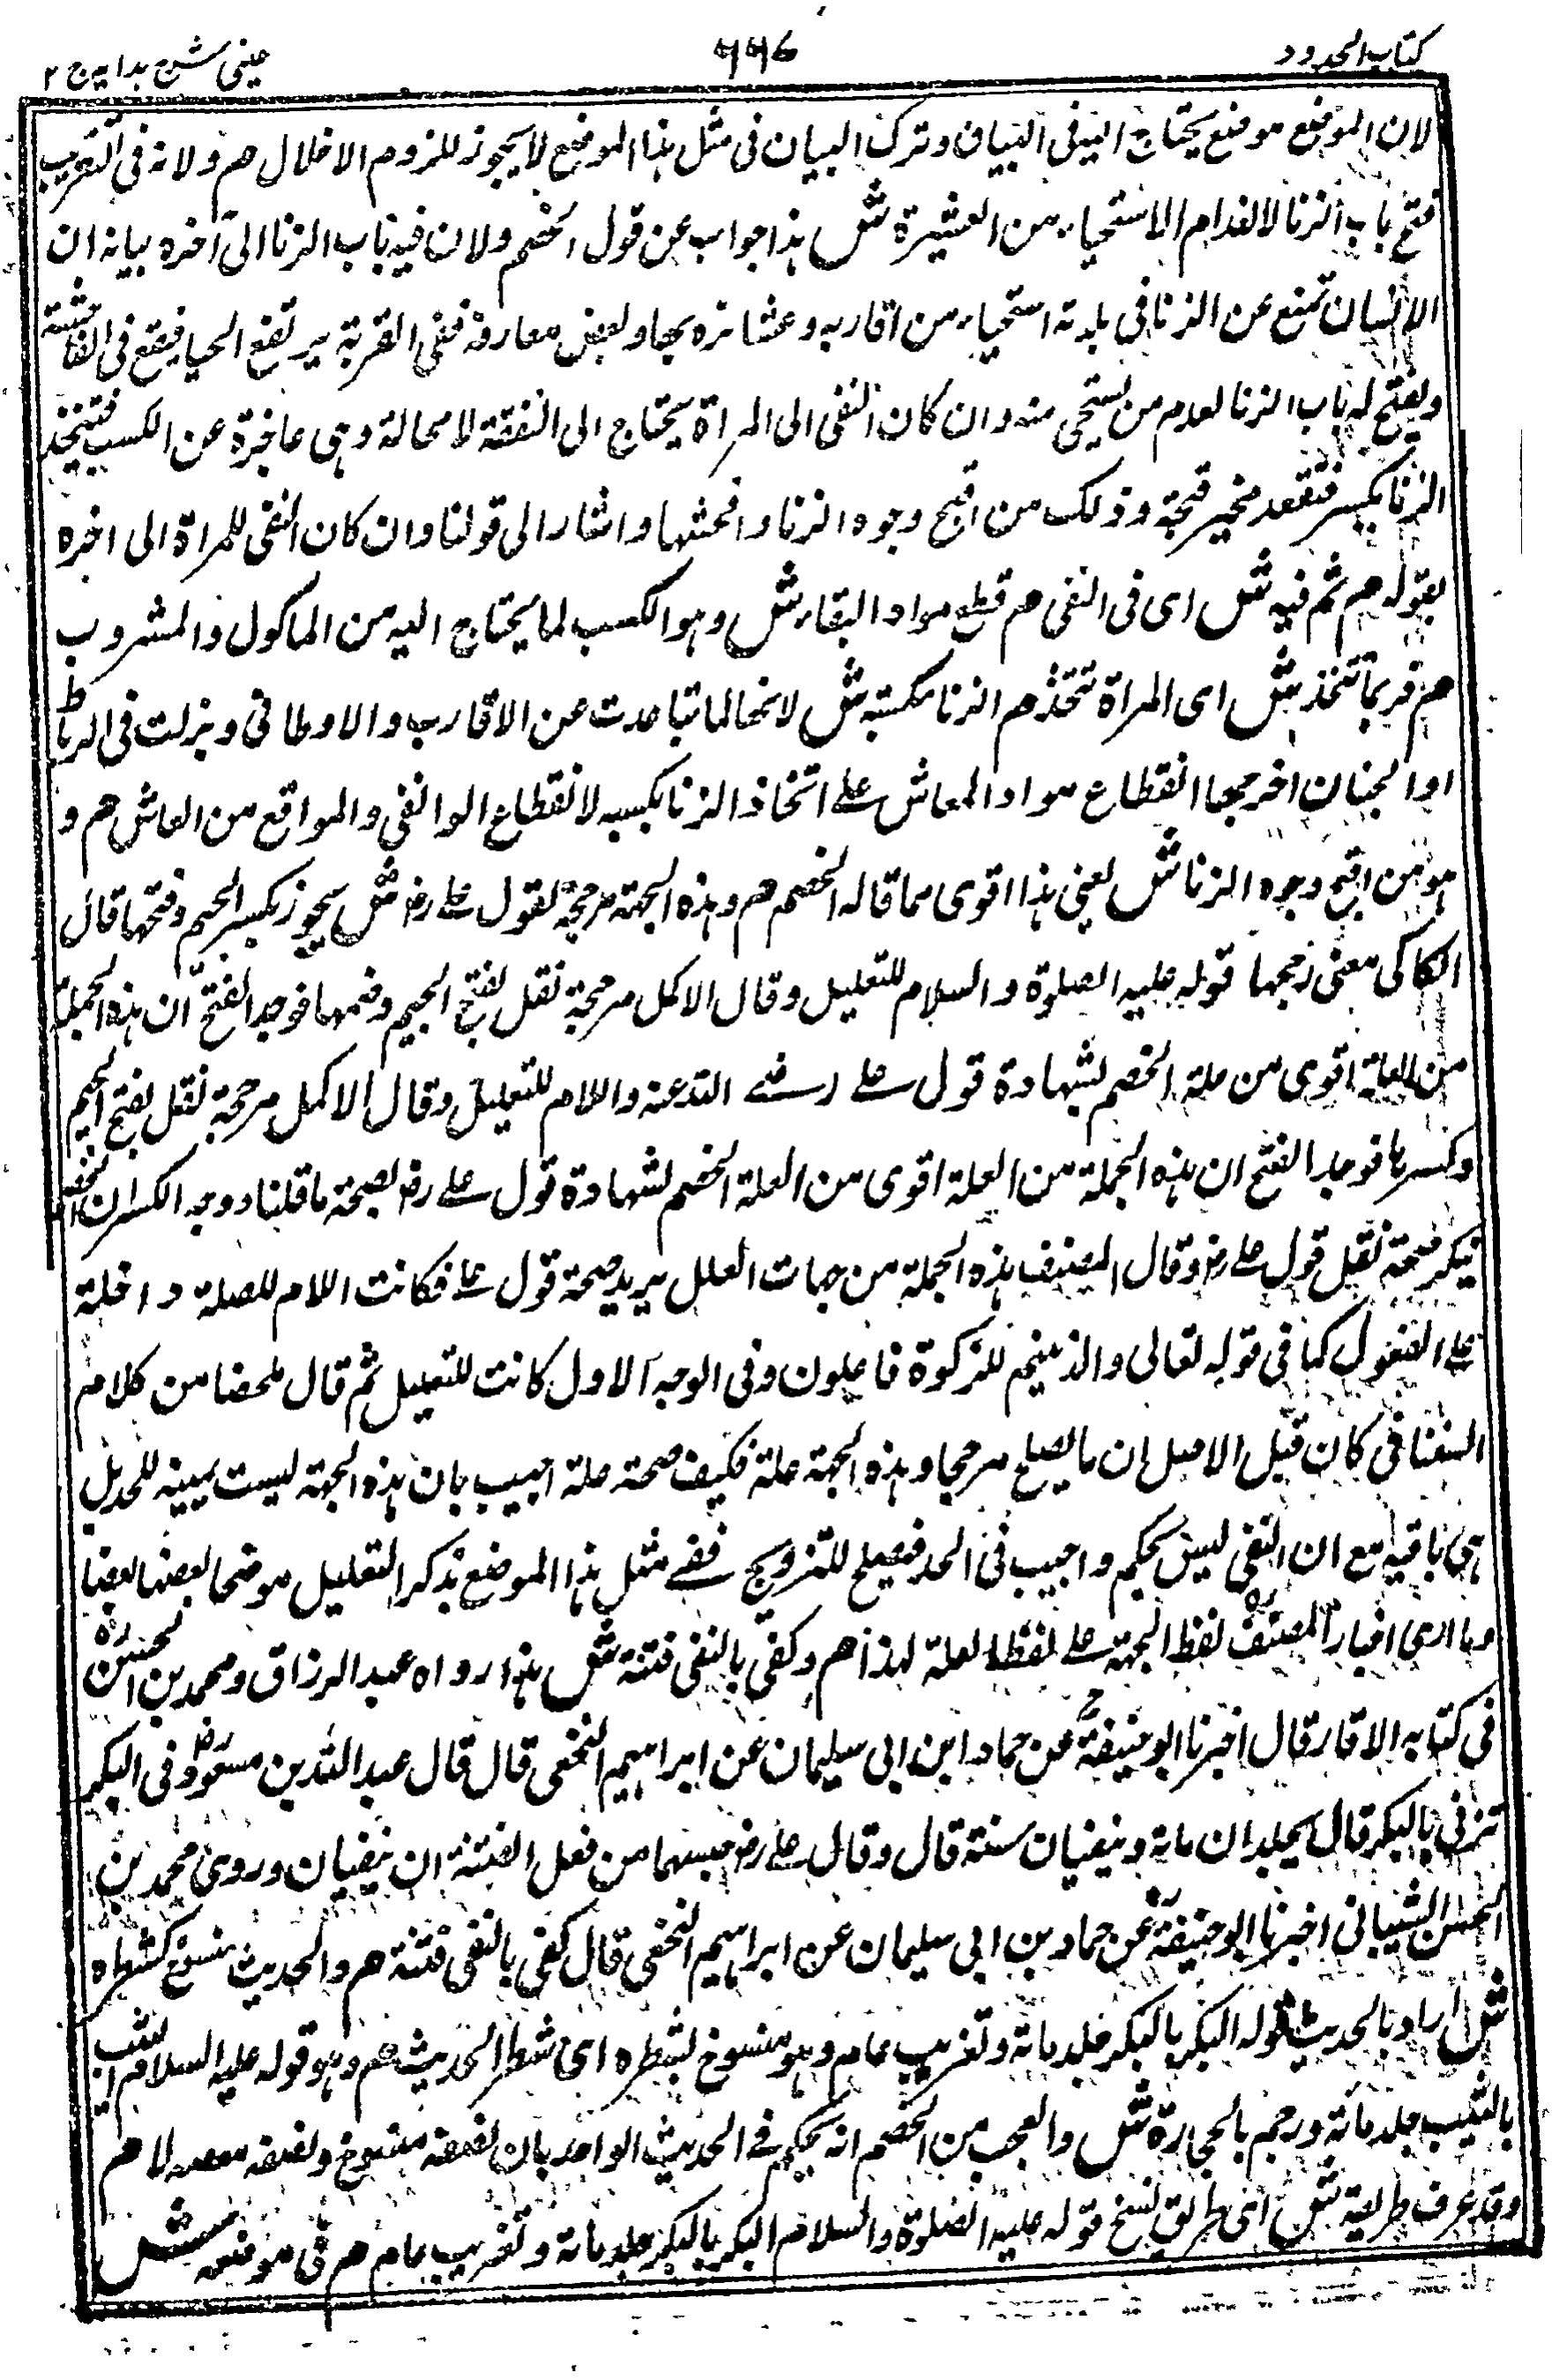 كتاب الحدود ٦٦٧ عينى شرح هدايه ج ٢
لان الموضع موضع يحتاج اليه فى البيان وترك البيان فى مثل هذا الموضع لا يجوز للزوم الاخلال هم ولانه فى التغريب
فتح باب الزنا لانعدام الاستحياء من العشيرة ش هذا جواب عن قول الخصم ولان فيه باب الزنا الى آخره بيانه ان
الانسان يمتنع عن الزنا فى بلدته استحياء من اقاربه وعشائره بها وبعض معارفه ففى الغربة يرتفع الحيا فيقع فى الفاحشة
ويفتح له باب الزنا لعدم من يستحى منه وان كان النفى الى المراة يحتاج الى النفقة لا محالة وهى عاجزة عن الكسب فتتخذ
الزنا بكسر فتقعد قحبة وذلك من اقبح وجوه الزنا وافحشها واشار الى قولنا وان كان النفى للمراة الى اخره
بقوله هم ثم فيه ش اى فى النفى هم قطع مواد البقاء ش وهو الكسب لما يحتاج اليه من الماكول والمشروب
هم فربما تتخذ ش اى المراة تتخذ هم الزنا مكسبة ش لانها لما تباعدت عن الاقارب والاوطانى ونزلت فى الرباط
اوالخان اخرجها انقطاع مواد المعاش على اتخاذ الزنا بكسبه لانقطاع الوانفى والمواقع من العاش هم و
هو من اقبح وجوه الزنا ش يعنى هذا اقوى مما قاله الخصم هم وهذه الجهة مرجحة لقول على رض ش يجوز بكسر الجيم وفتحها قال
الكاكى معنى رجحها قوله عليه الصلوة والسلام للتعليل وقال الاكمل مرجحة نقل بفتح الجيم وضمها فوجد الفتح ان هذه الجملة
من العلة اقوى من علة الخصم بشهادة قول على رضى الله عنه واللام للتعليل وقال الاكمل مرجحة نقل بفتح الجيم
وكسرها فوجه الفتح ان هذه الجملة من العلة اقوى من العلة الخصم لشهادة قول على رض لصحة ما قلنا ووجه الكسر ان الخصم
ينكر صحة نقل قول على رض وقال المصنف هذه الجملة من جهات العلل يريد صحة قول على فكانت اللام للصلة داخلة
على المفعول كما فى قوله تعالى والذينهم للزكوة فاعلون وفى الوجه الاول كانت للتعليل ثم قال ملخصا من كلام
السغناقى كان قيل الاصل ان ما يصلح مرجحا وهذه الجهة علة فكيف صحة علة اجيب بان هذه الجهة ليست بمبينه للحد بل
هى نافيه مع ان النفى ليس بحكم واجيب فى الحد فيصلح للترويج ففى مثل هذا الموضع يذكر التعليل موضحا بعضها بعضا
وما ارى اخبار المصنف لفظ الجهة على لفظ العلة لهذا هم وكفى بالنفى فتنة ش هذا رواه عبد الرزاق ومحمد بن الحسن
فى كتابه الاقار قال اخبرنا ابو حنيفة عن حماد ابن ابى سليمان عن ابراهيم النخعى قال قال عبد الله بن مسعود فى البكر
تزنى بالبكر قال يجلدان ماية وينفيان سنة قال وقال على رض حبسهما من فعل الفتنة ان ينفيان وروى محمد بن
الحسن الشيبانى اخبرنا ابو حنيفة عن حماد بن ابى سليمان عن ابراهيم النخعى قال كفى بالنفى فتنة هم والحديث منسوخ كشطره
ش اراد بالحديث قوله البكر بالبكر جلد ماية وتغريب عام وهو منسوخ بشطره اى شطر الحديث هم وهو قوله عليه السلام الثيب
بالثيب جلد مائة ورجم بالحجارة ش والعجب من الخصم انه يحكم فى الحديث الواحد بان نصفه منسوخ ونصفه لا هم
وقد عرف طريقه ش اى طريق نسخ قوله عليه الصلوة والسلام البكر بالبكر جلد مائة وتغريب عام هم فى موضعه ش